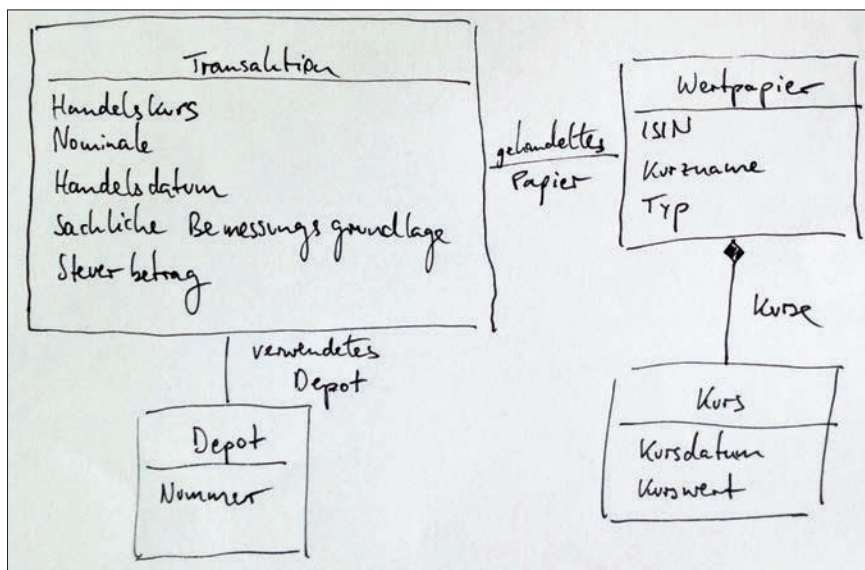 Transaktion
Handelskurs
Nominale
Handelsdatum
Sachliche Bemessungsgrundlage
Steuerbetrag
gehandeltes
Papier
Wertpapier
ISIN
Kurzname
Typ
Kurse
verwendetes
Depot
Depot
Nummer
Kurs
Kursdatum
Kurswert